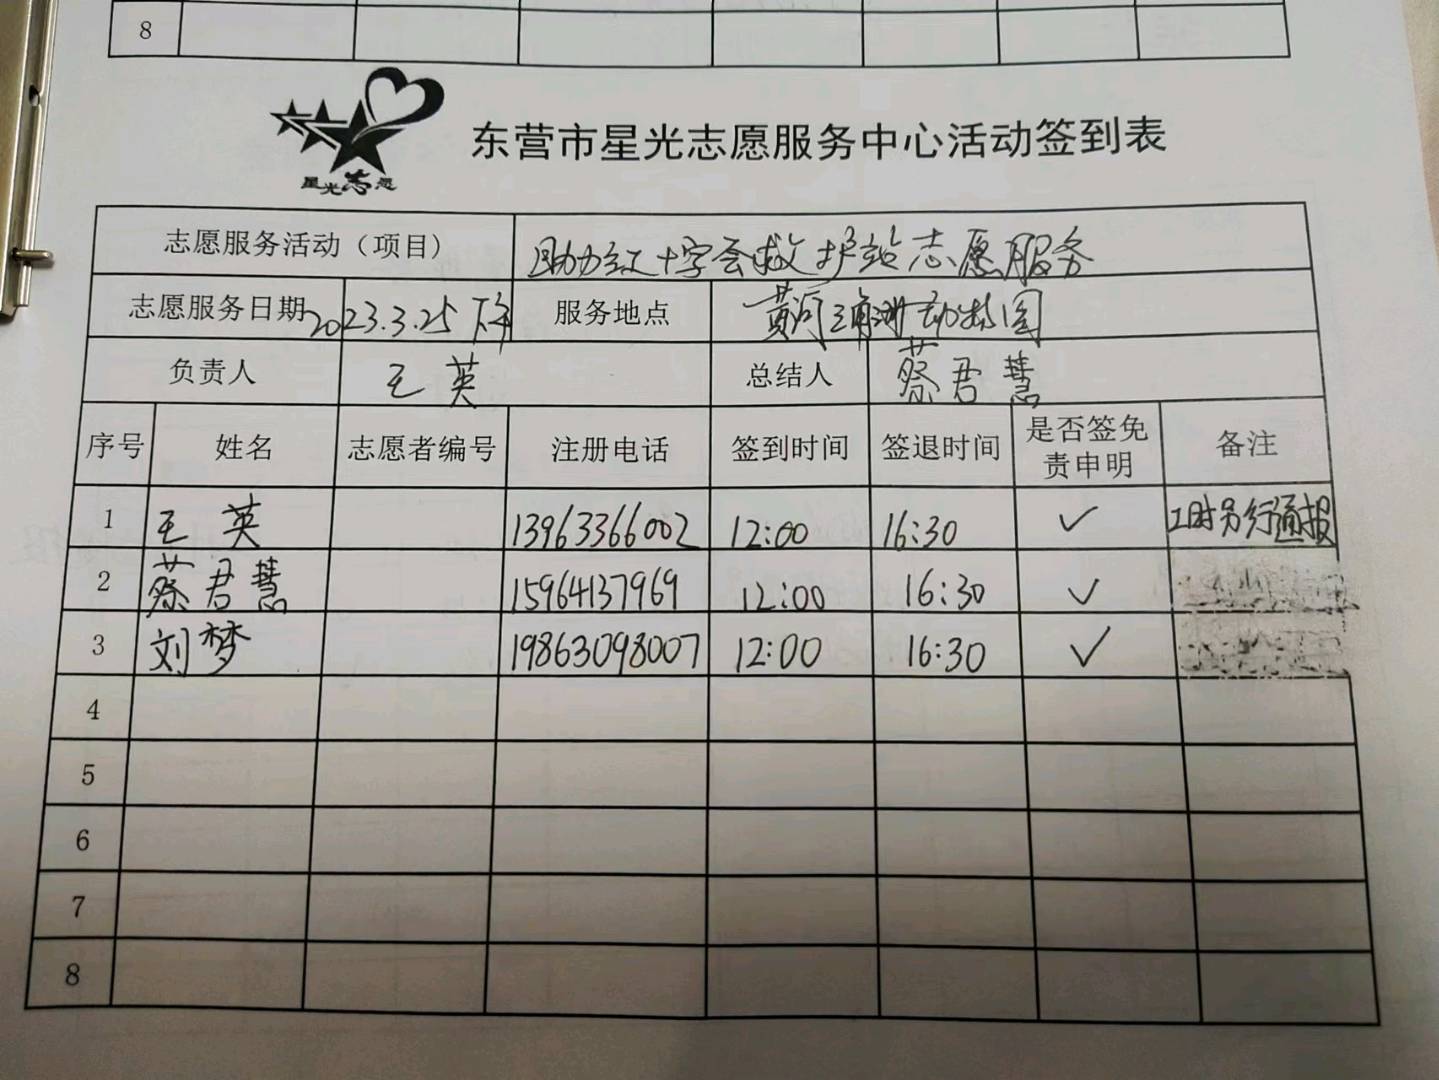 8
星光志愿
东营市星光志愿服务中心活动签到表
志愿服务活动（项目） 助力红十字会救护站志愿服务
志愿服务日期 2023.3.25 下午 服务地点 黄河三角洲动物园
负责人 王英 总结人 蔡君慧
序号 姓名 志愿者编号 注册电话 签到时间 签退时间 是否签免责申明 备注
1 王英 13963366002 12:00 16:30 ✓ 工时另行通报
2 蔡君慧 15964137969 12:00 16:30 ✓
3 刘梦 19863098007 12:00 16:30 ✓
4
5
6
7
8